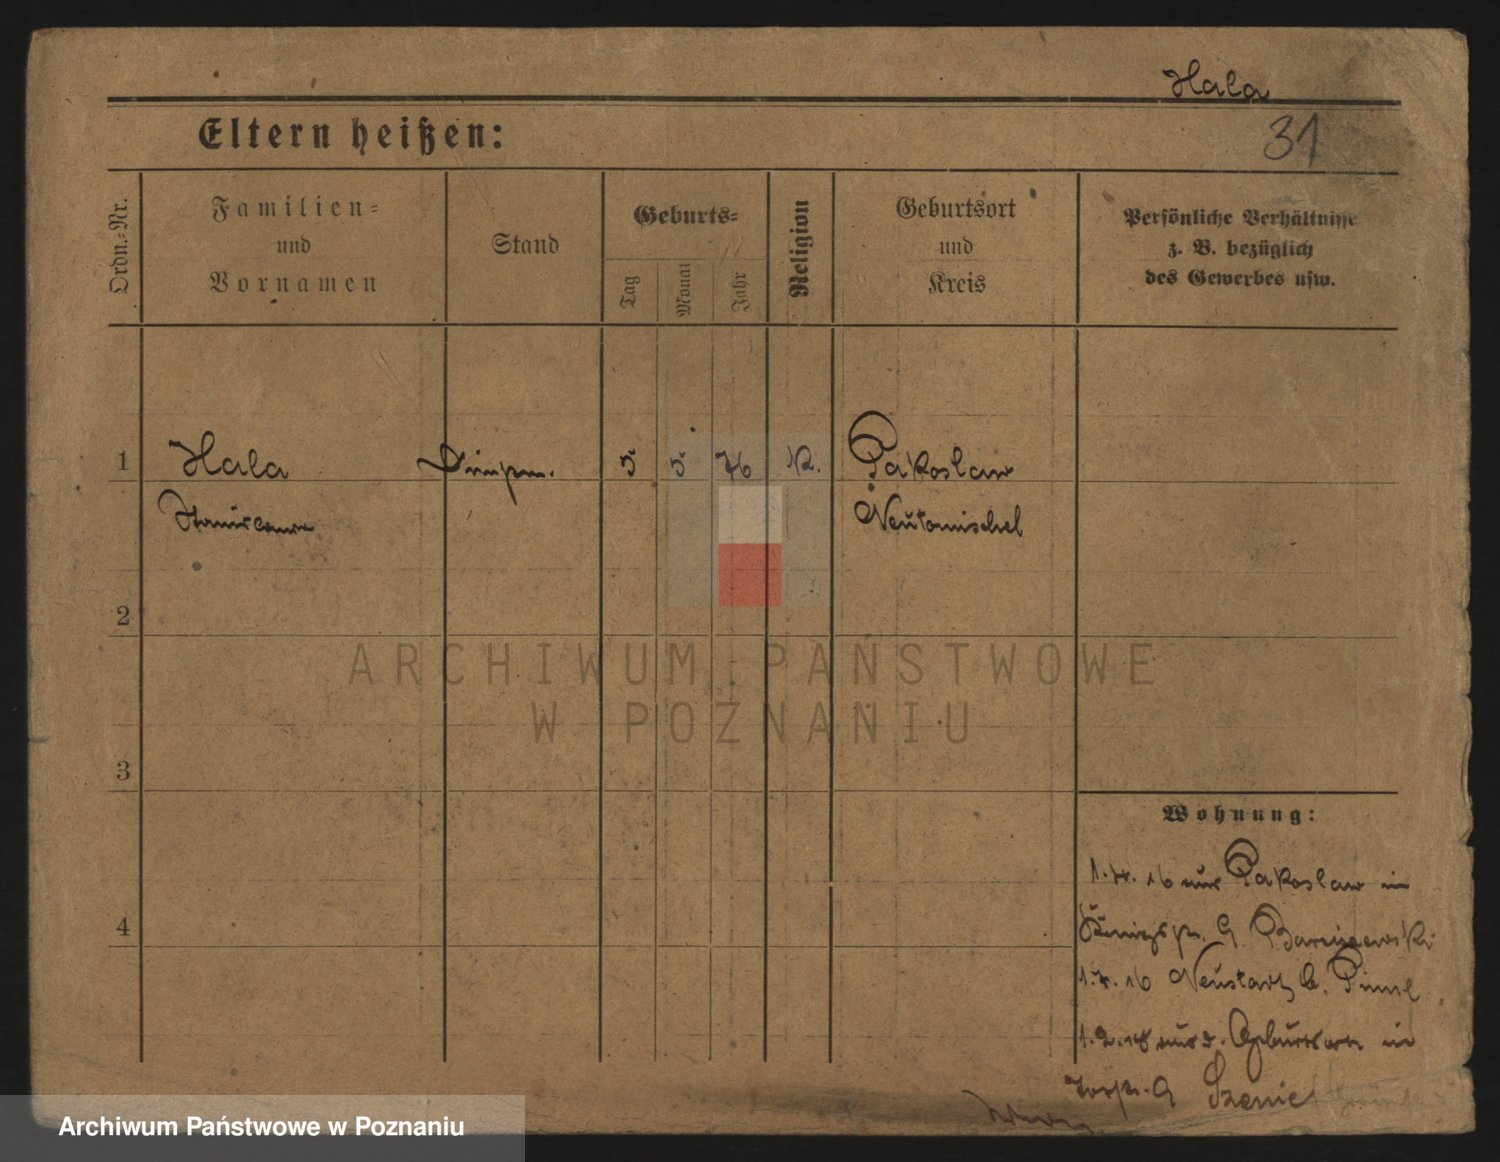 Hala
31
Eltern heißen:
Ordn.-Nr.
Familien-
und
Vornamen
Stand
Geburts-
Tag
Monat
Jahr
Religion
Geburtsort
und
Kreis
Persönliche Verhältnisse
z. B. bezüglich
des Gewerbes usw.
1 Hala 5 5 76 K. Pakoslaw
Stanislaus Neutomischel
2
ARCHIWUM PAŃSTWOWE
W POZNANIU
3
Wohnung:
1. 16 aus Pakoslaw in
4
G.
1. 16 Neustadt b. Pinne
1.2.18 Geburtsort in
Archiwum Państwowe w Poznaniu